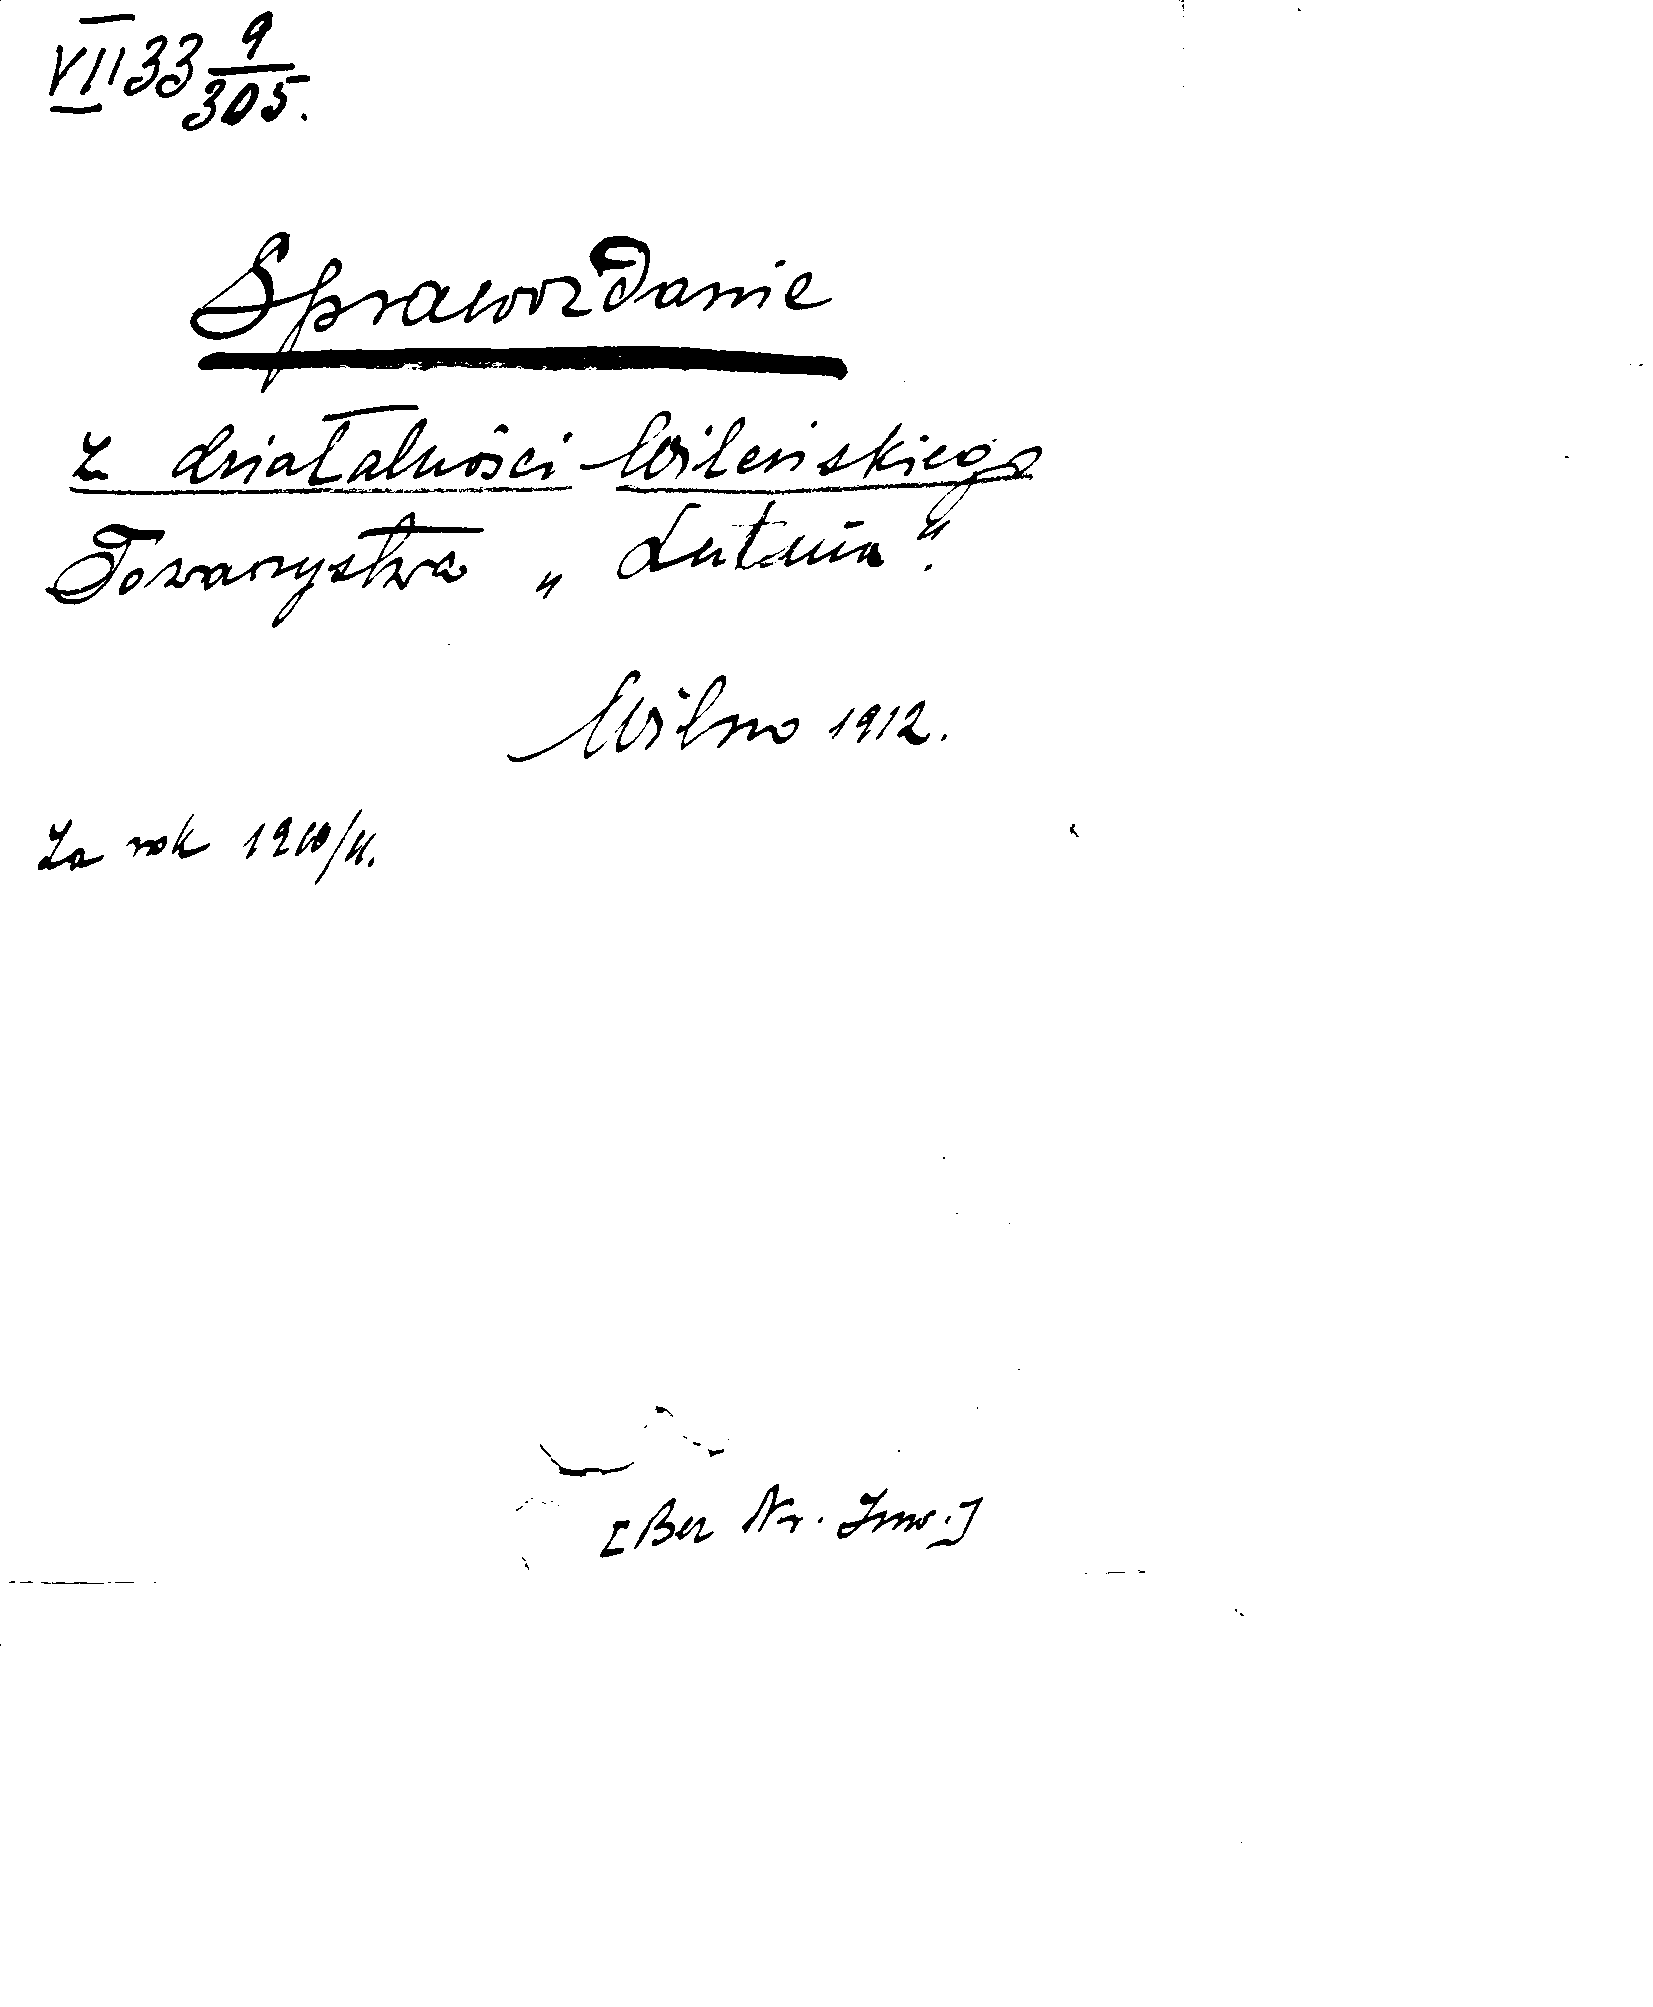 VII 33 9/305.
Sprawozdanie
z działalności Wileńskiego
Towarzystwa „Lutnia“.
Wilno 1912.
Za rok 1910/11.
[Bez Nr. Inw.]